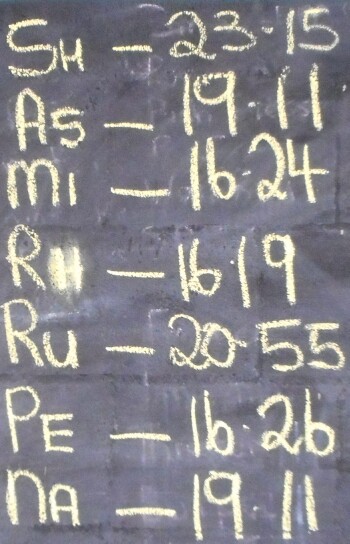 SH - 23·15
AS - 19·11
Mi - 16·24
R - 16 19
Ru - 20·55
PE - 16·26
NA - 19·11